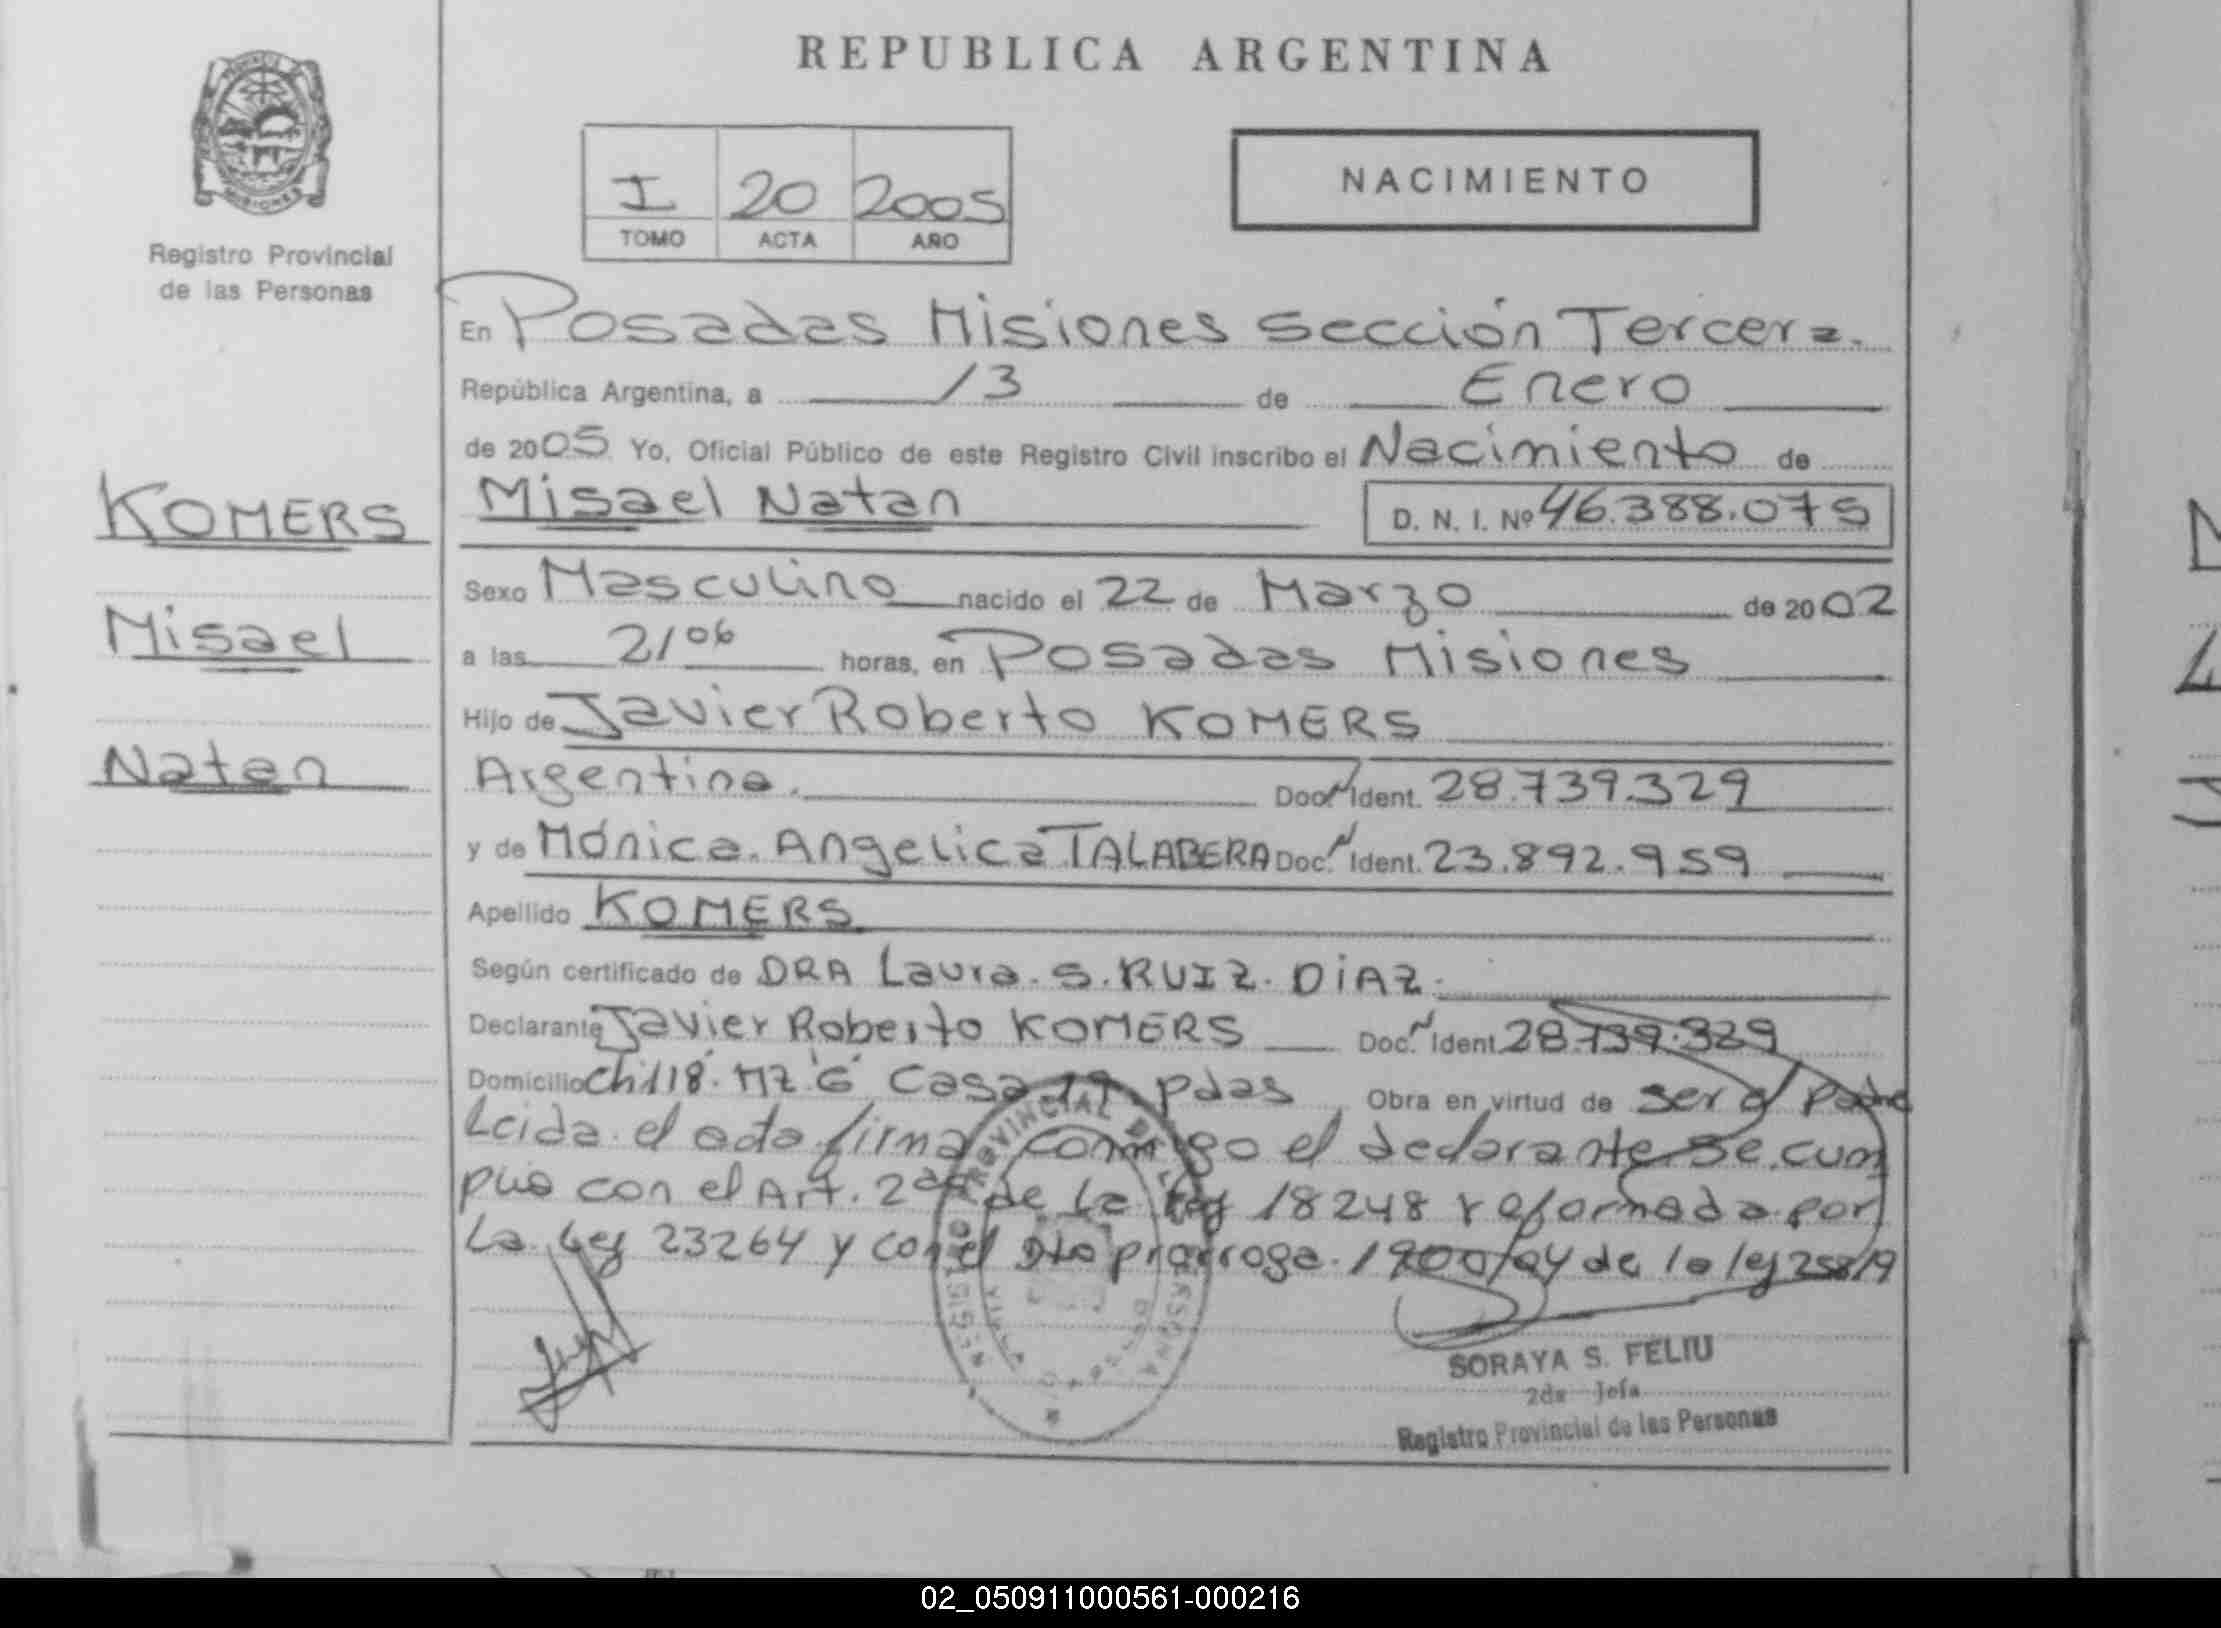 REPUBLICA ARGENTINA
PROVINCIA DE MISIONES
Registro Provincial
de las Personas
I 20 2005
TOMO ACTA AÑO
NACIMIENTO
En Posadas Misiones Sección Tercera.
República Argentina, a 13 de Enero
de 2005 Yo, Oficial Público de este Registro Civil inscribo el Nacimiento de
Misael Natan D. N. I. Nº 46.388.075
KOMERS
Misael
Natan
Sexo Masculino nacido el 22 de Marzo de 2002
a las 21 06 horas, en Posadas Misiones
Hijo de Javier Roberto KOMERS
Argentina. Doc. Ident. 28.739.329
y de Mónica. Angelica TALABERA Doc. Ident. 23.892.959
Apellido KOMERS
Según certificado de DRA Laura. S. RUIZ. DiAZ.
Declarante Javier Roberto KOMERS Doc. Ident. 28.739.329
Domicilio Ch 118. MZ 'G' Casa 19 pdas Obra en virtud de ser el Padre
Leida el acta firma conmigo el declarante Se cum
plio con el Art. 2do de la ley 18248 reformada por
La Ley 23264 y con el Dto prorroga. 1900/04 de la ley 25819
REGISTRO PROVINCIAL DE PERSONAS
SORAYA S. FELIU
2da Jefa
Registro Provincial de las Personas
02_050911000561-000216